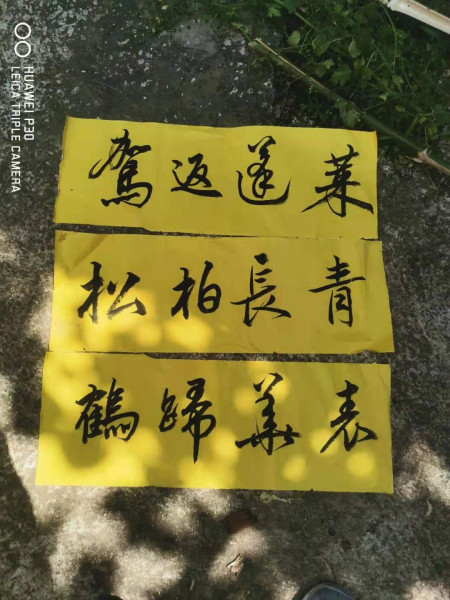 駕返蓬萊
松柏長青
鶴歸華表
HUAWEI P30
LEICA TRIPLE CAMERA